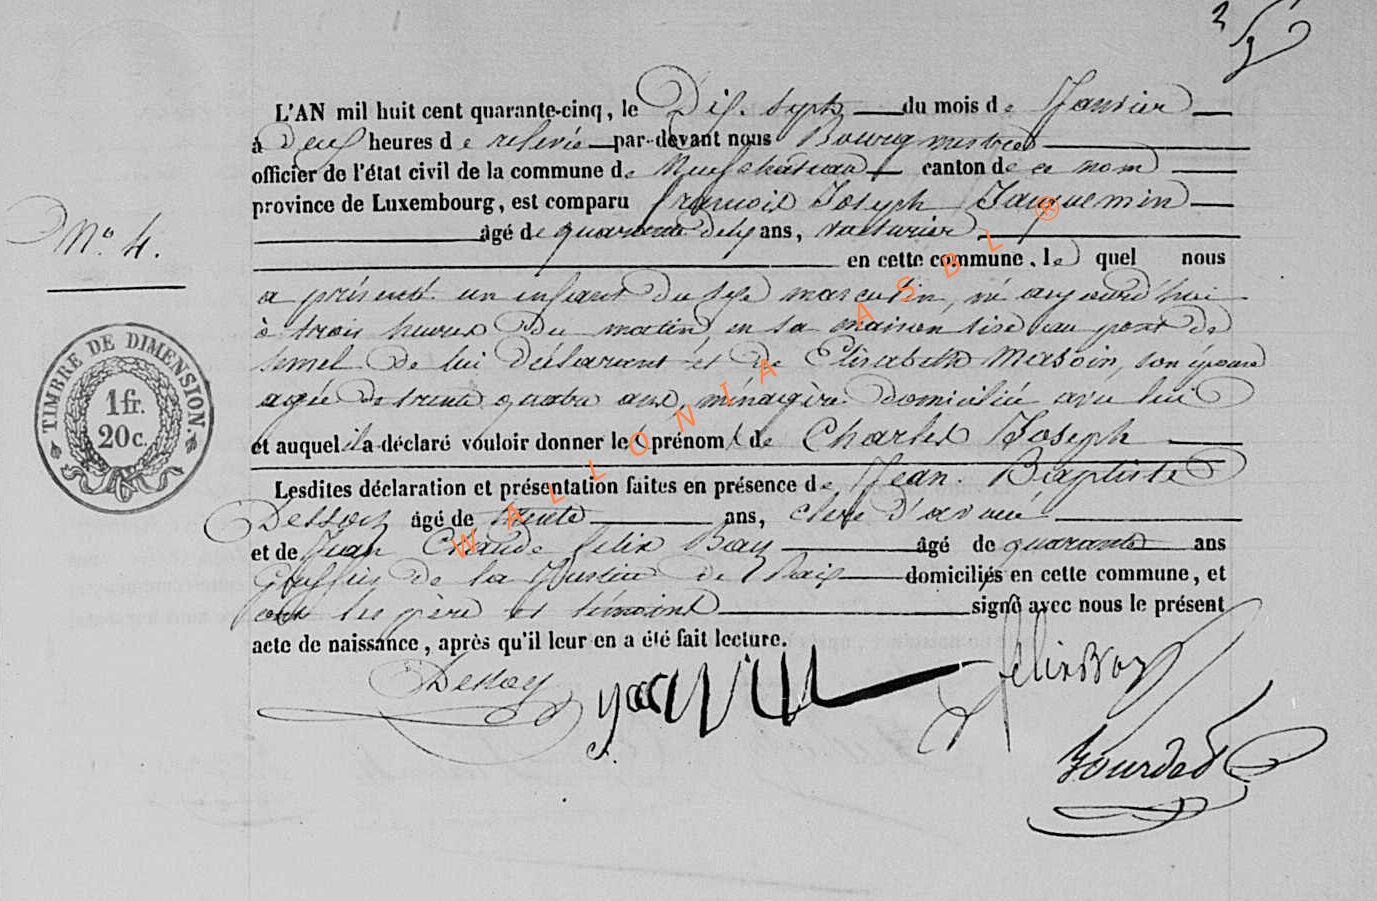 N.º 4.
TIMBRE DE DIMENSION.
1 fr.
20 c.
L'AN mil huit cent quarante-cinq, le Dix-sept du mois de Janvier
à Deux heures de relevée par-devant nous Bourgmestre
officier de l'état civil de la commune de Neufchâteau canton de ce nom
province de Luxembourg, est comparu François Joseph Jacquemin
âgé de quarante ans, voiturier
en cette commune, lequel nous
a présenté un enfant du sexe masculin, né aujourd'hui
à trois heures du matin, en sa maison sise au pont de
de lui déclarant et de Elisabeth Masoin, son épouse
agée de trente quatre ans, ménagère domiciliée avec lui
et auquel il a déclaré vouloir donner les prénoms de Charles Joseph
Lesdites déclaration et présentation faites en présence de Jean Baptiste
Dessoy âgé de trente ans, clerc d'avoué
et de Jean Claude Felix Bay âgé de quarante ans
Greffier de la Justice de Paix domiciliés en cette commune, et
ont les père et témoins signé avec nous le présent
acte de naissance, après qu'il leur en a été fait lecture.
Dessoy
Felix Bay
Bourdet
WALLONIA ASBL ®